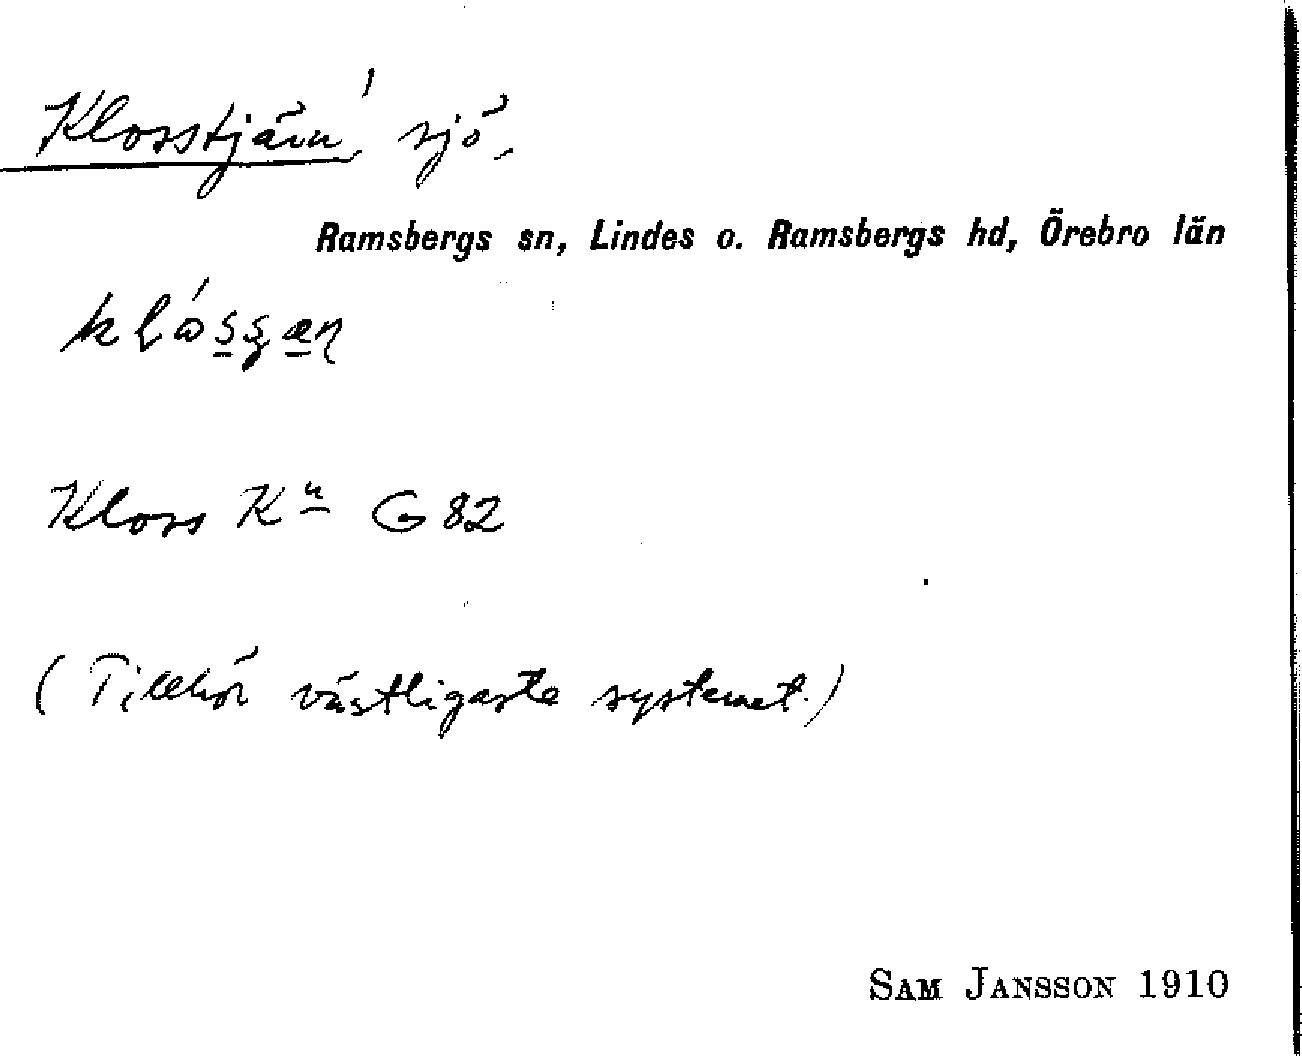 Klosstjärn, sjö,
Ramsbergs sn, Lindes o. Ramsbergs hd, Örebro län
Kloss Kn G 82
(Tillhör västligaste systemet.)
SAM JANSSON 1910